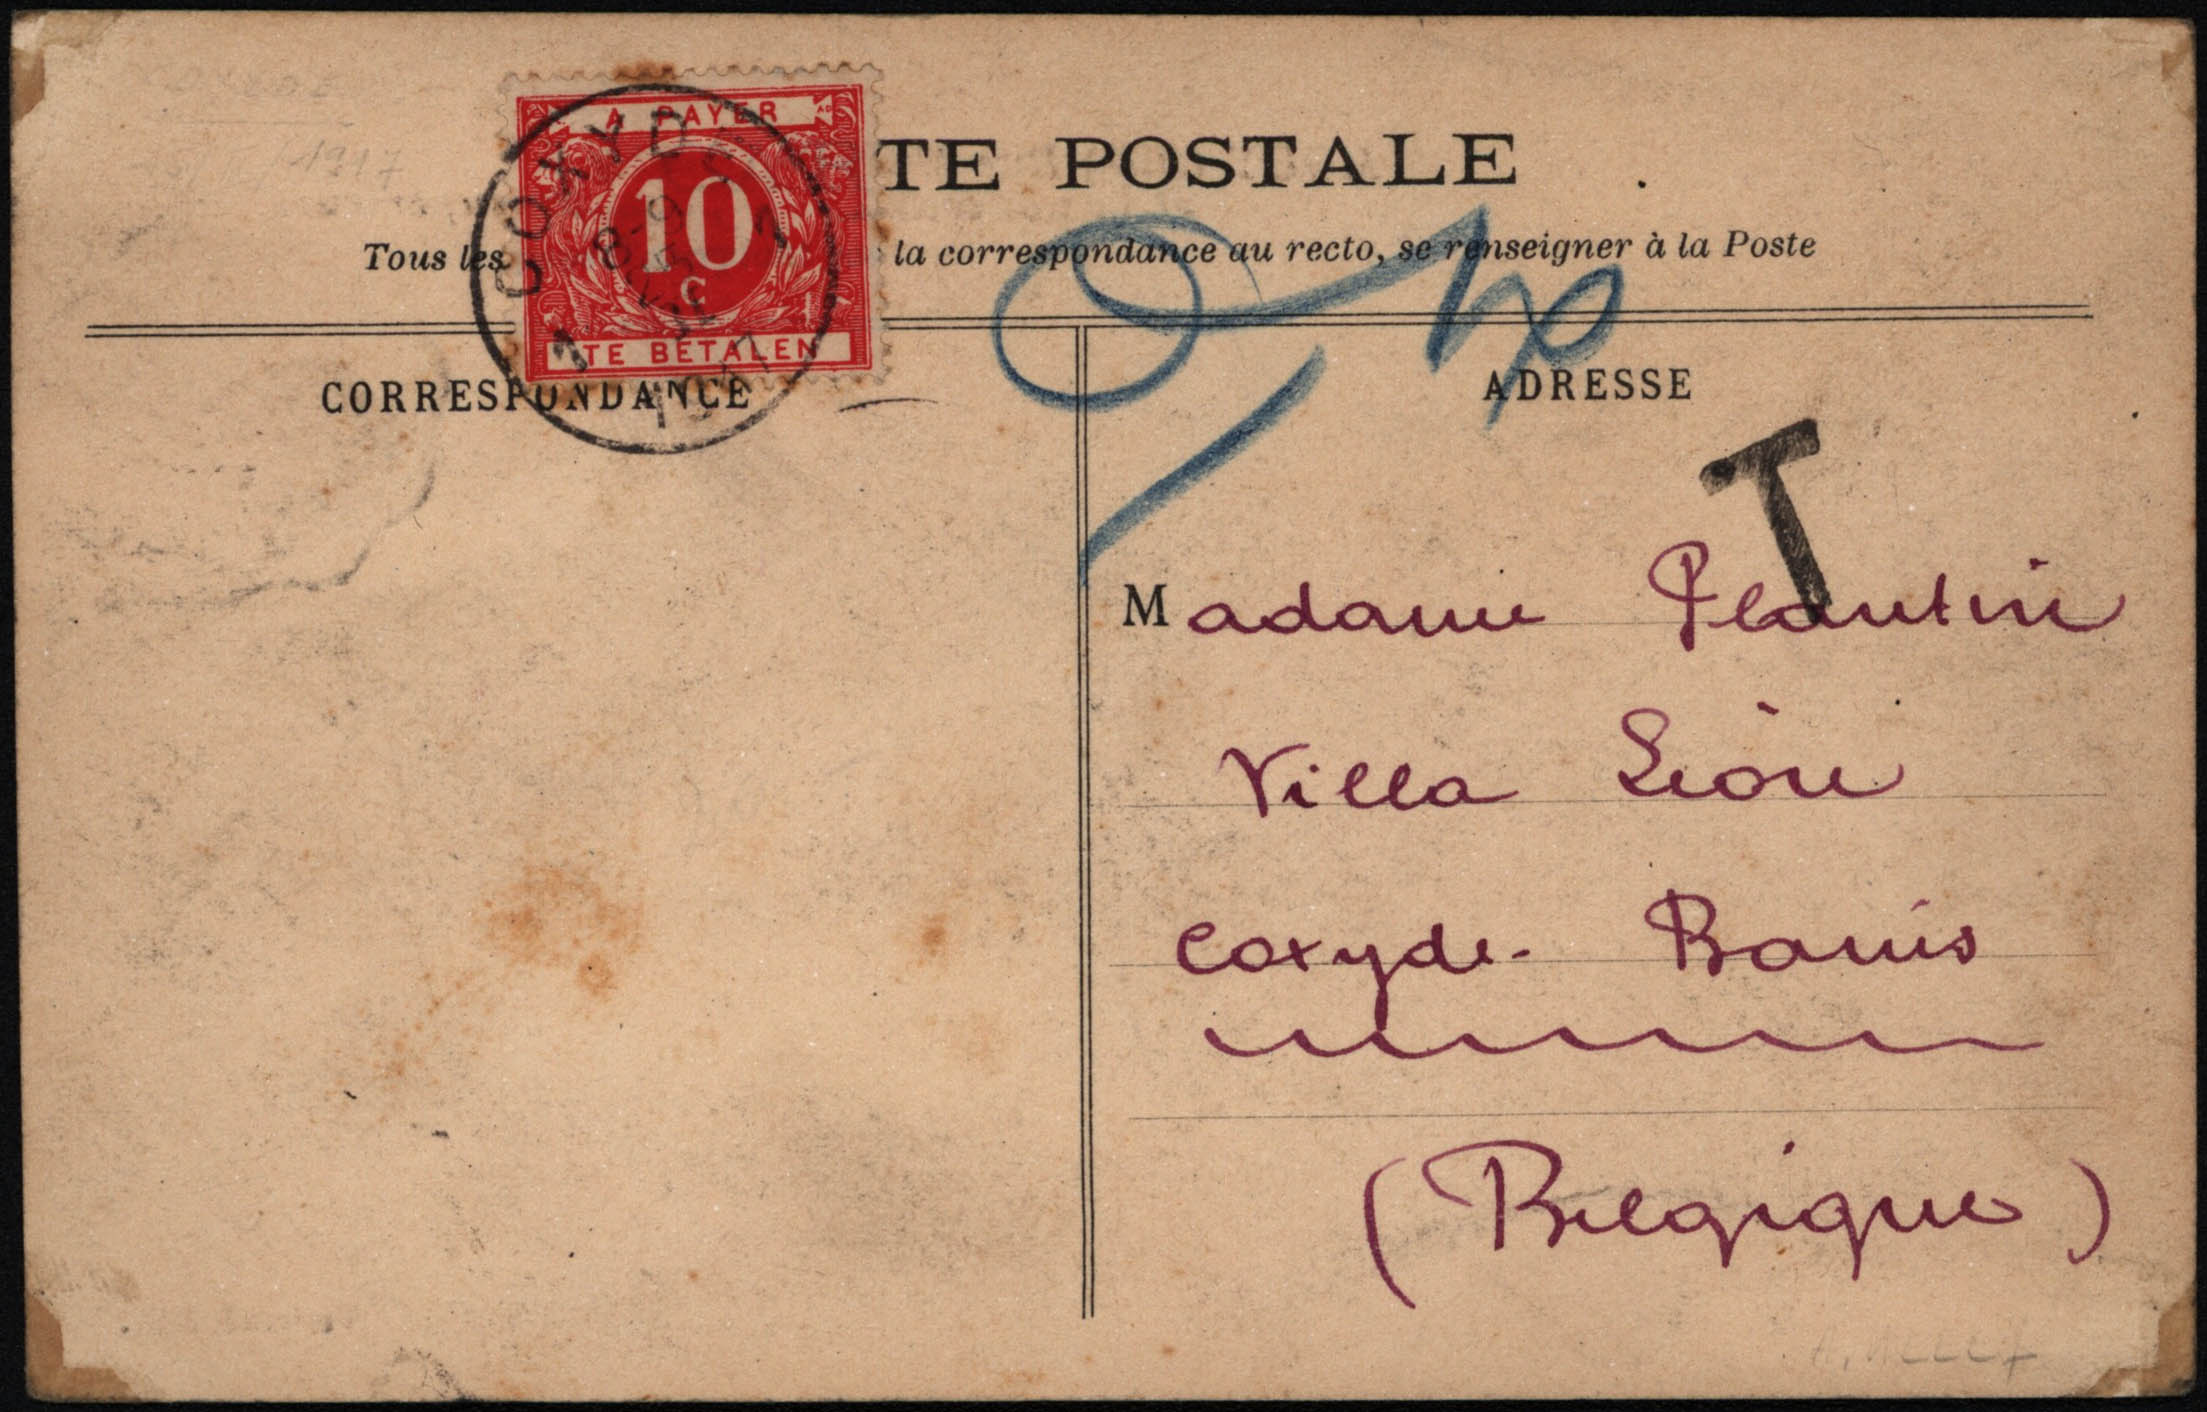 A PAYER
10
c
TE BETALEN
COXYDE
8-9
TE POSTALE
Tous les
la correspondance au recto, se renseigner à la Poste
CORRESPONDANCE
ADRESSE
T
Madame Plantin
Villa Léon
Coxyde-Bains
(Belgique)